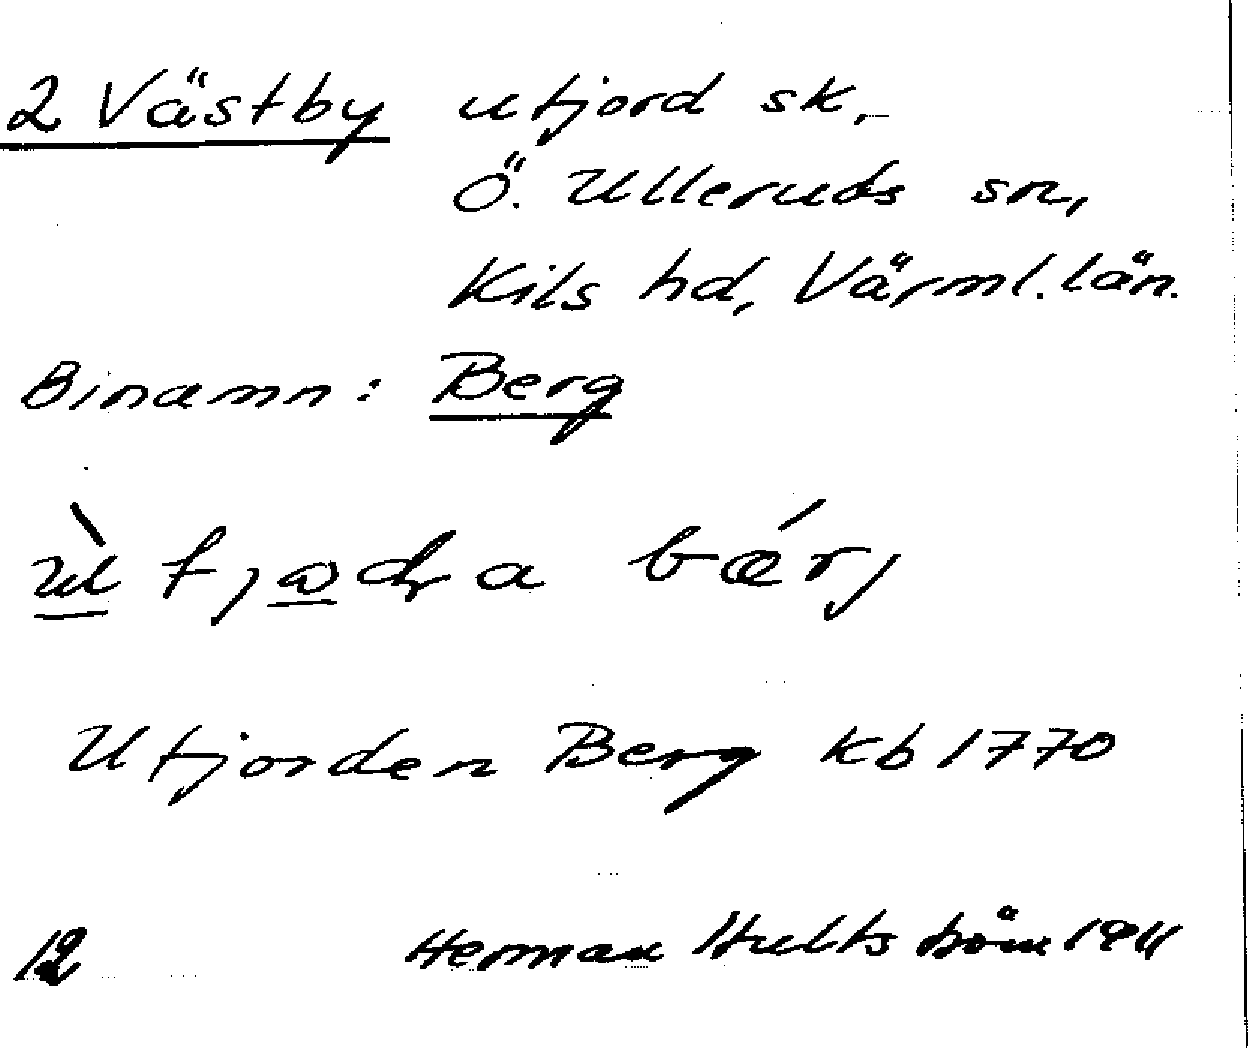 2 Västby utjord sk.
Ö. Ulleruds sn,
Kils hd, Värml. län.
Binamn: Berg
Utjorden Berg Kb 1770
12 Herman Hultström 1911